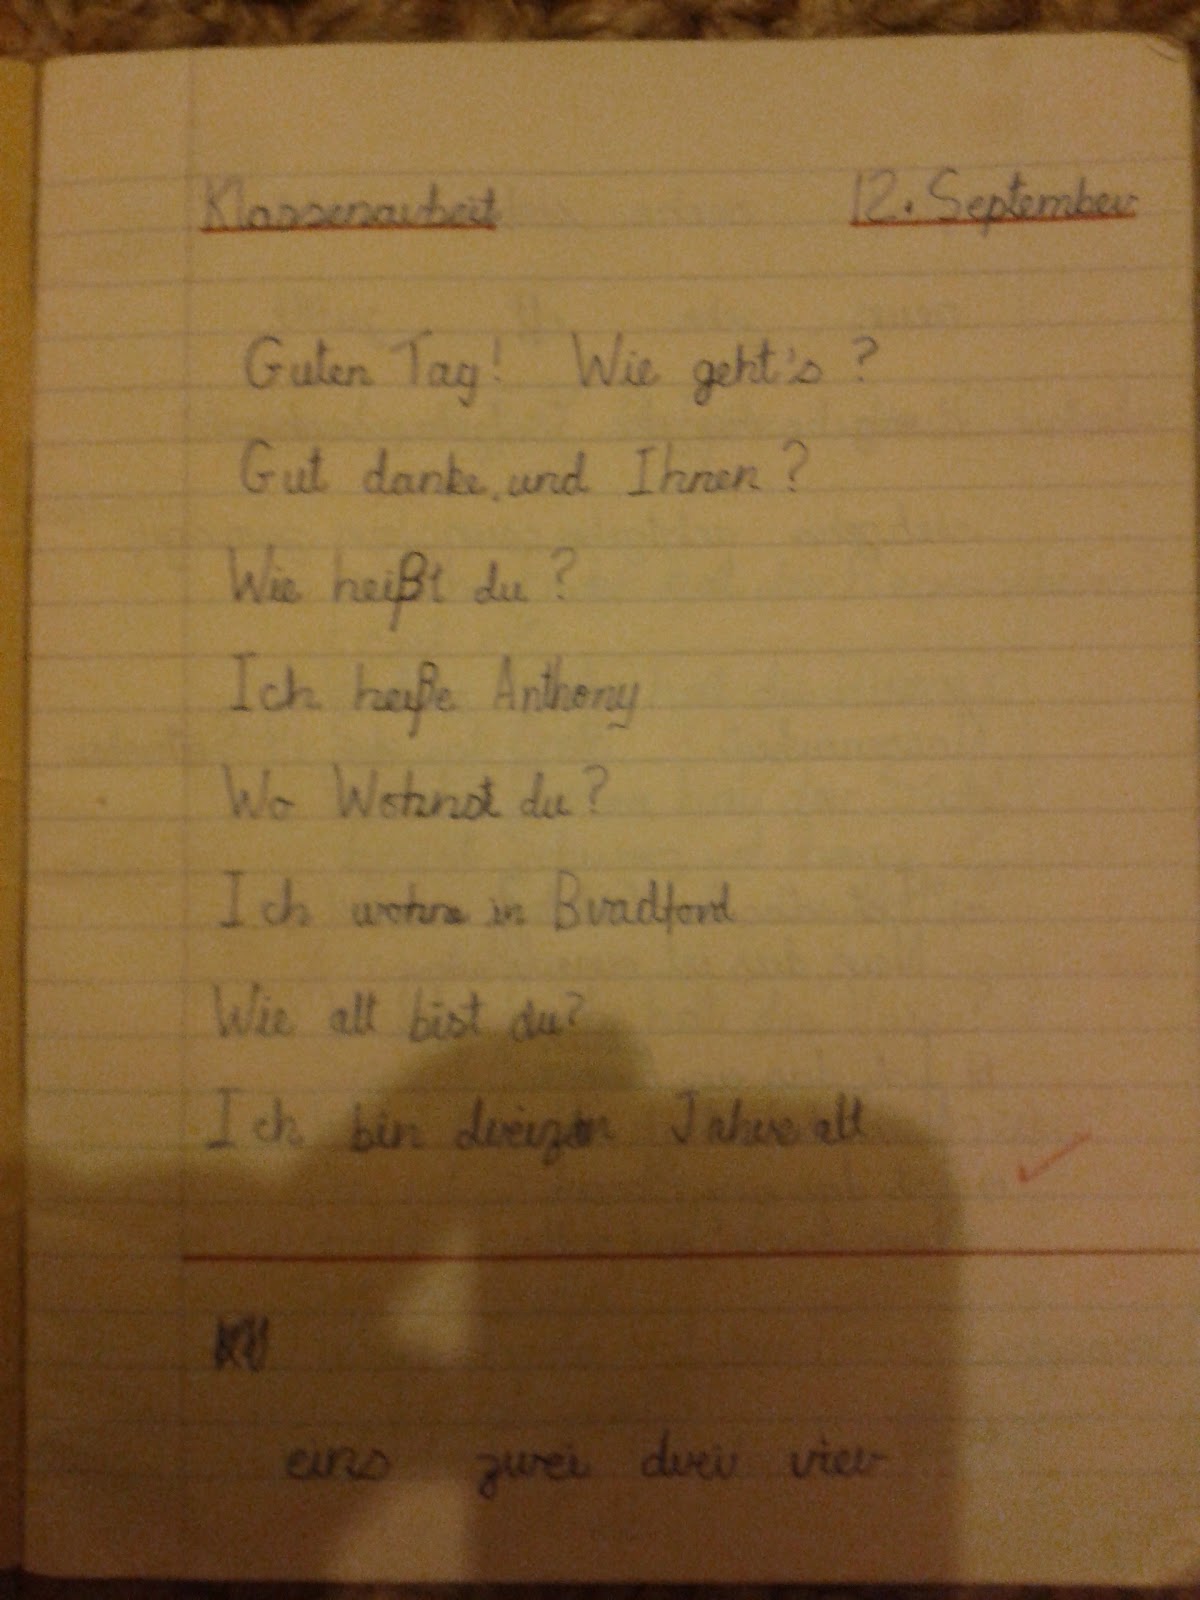 Klassenarbeit 12. September
Guten Tag! Wie geht's?
Gut danke, und Ihnen?
Wie heißt du?
Ich heiße Anthony
Wo Wohnst du?
Ich wohne in Bradford
Wie alt bist du?
Ich bin Jahre alt
eins zwei drei vier